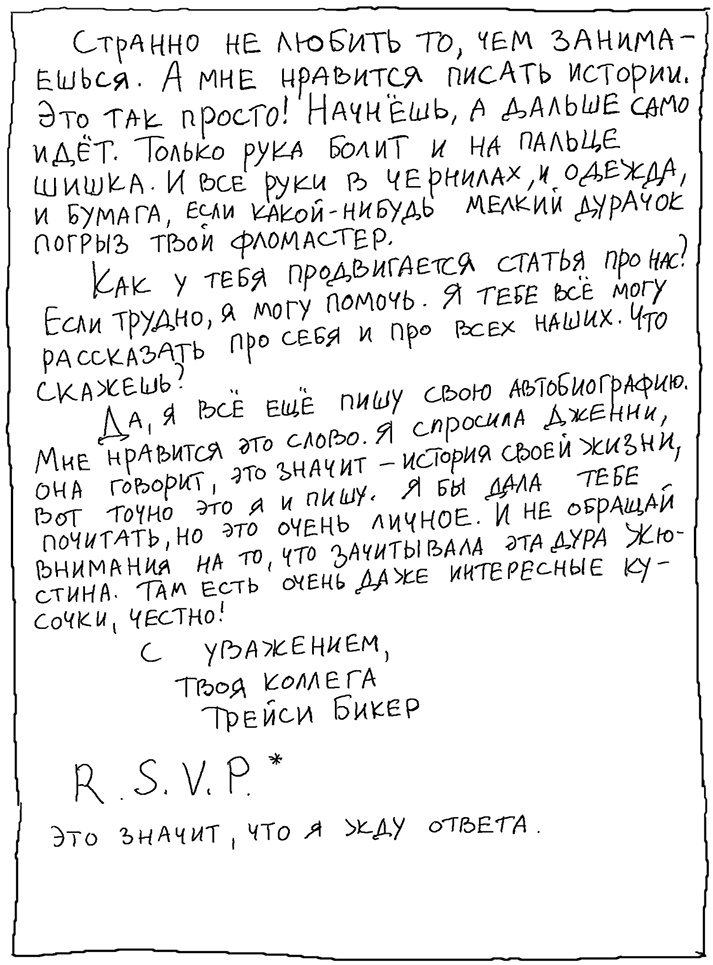 Странно не любить то, чем занима-
ешься. А мне нравится писать истории.
Это так просто! Начнёшь, а дальше само
идёт. Только рука болит и на пальце
шишка. И все руки в чернилах, и одежда,
и бумага, если какой-нибудь мелкий дурачок
погрыз твой фломастер.
Как у тебя продвигается статья про нас?
Если трудно, я могу помочь. Я тебе всё могу
рассказать про себя и про всех наших. Что
скажешь?
Да, я всё ещё пишу свою автобиографию.
Мне нравится это слово. Я спросила Дженни,
она говорит, это значит – история своей жизни,
вот точно это я и пишу. Я бы дала тебе
почитать, но это очень личное. И не обращай
внимания на то, что зачитывала эта дура Жю-
стина. Там есть очень даже интересные ку-
сочки, честно!
С уважением,
твоя коллега
Трейси Бикер
R.S.V.P.*
Это значит, что я жду ответа.